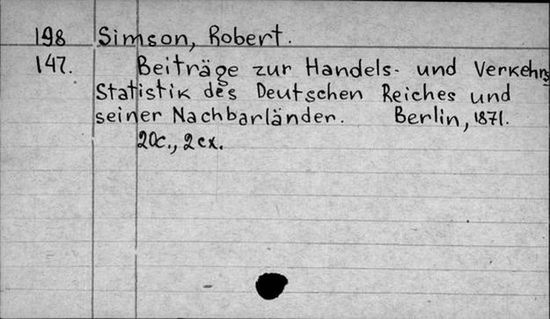 198 Simson, Robert.
147. Beiträge zur Handels- und Verkehrs
Statistik des Deutschen Reiches und
seiner Nachbarländer. Berlin, 1871.
20c., 2 ex.